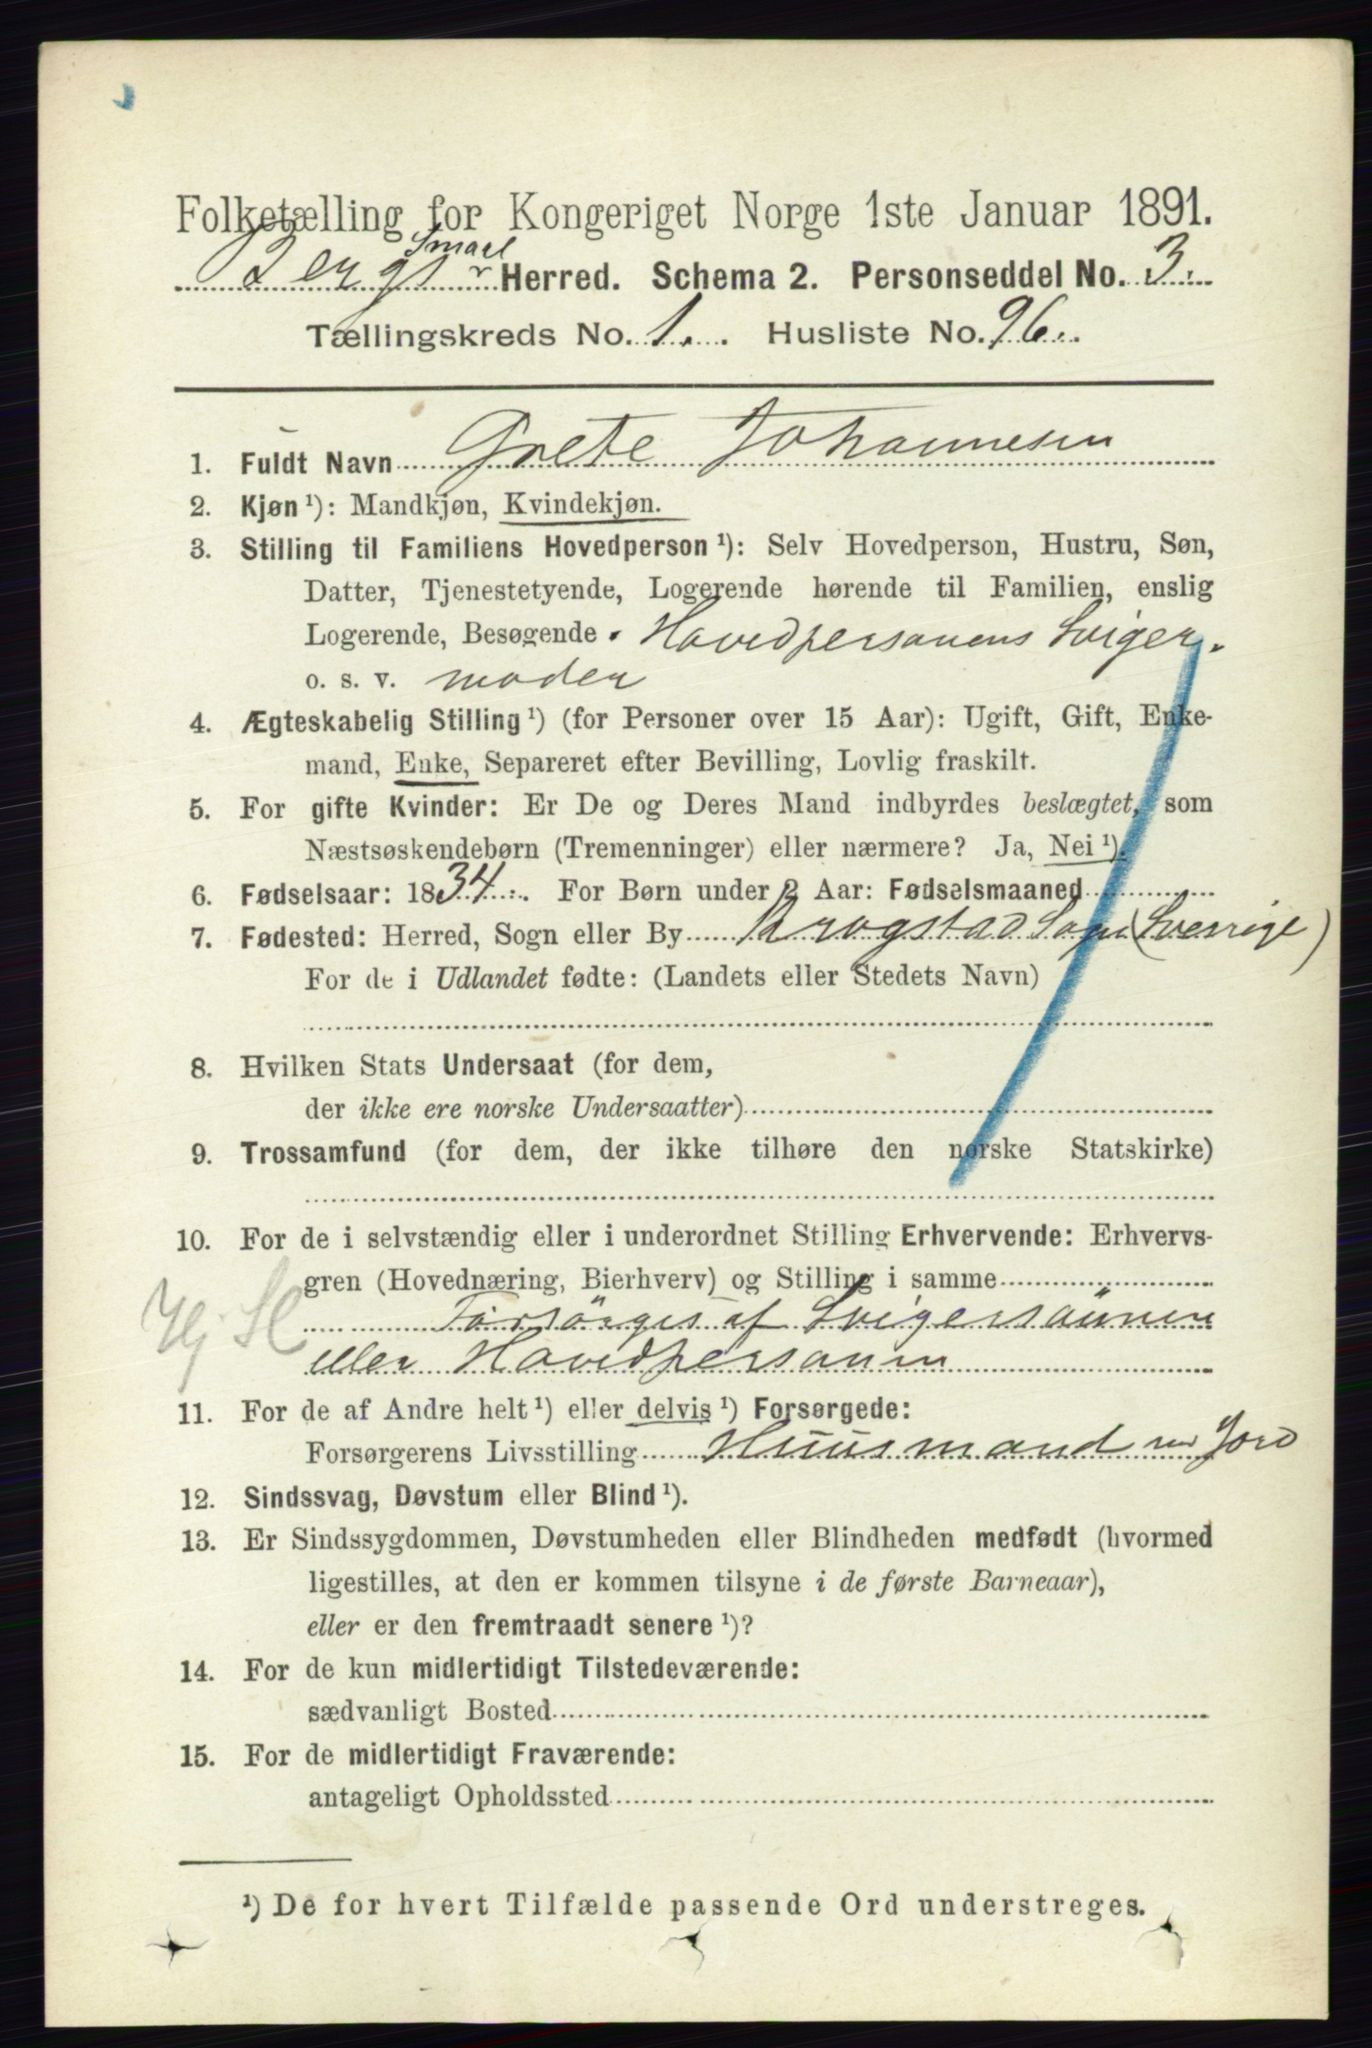 Folketælling for Kongeriget Norge 1ste Januar 1891.
Smaal
Bergs Herred. Schema 2. Personseddel No. 3.
Tællingskreds No. 1. Husliste No. 96.
1. Fuldt Navn Grete Johannesen
2. Kjøn ¹): Mandkjøn, Kvindekjøn.
3. Stilling til Familiens Hovedperson ¹): Selv Hovedperson, Hustru, Søn,
Datter, Tjenestetyende, Logerende hørende til Familien, enslig
Logerende, Besøgende. Hovedpersonens Sviger-
o. s. v. moder
4. Ægteskabelig Stilling ¹) (for Personer over 15 Aar): Ugift, Gift, Enke-
mand, Enke, Separeret efter Bevilling, Lovlig fraskilt.
5. For gifte Kvinder: Er De og Deres Mand indbyrdes beslægtet, som
Næstsøskendebørn (Tremenninger) eller nærmere? Ja, Nei ¹).
6. Fødselsaar: 1834. For Børn under 2 Aar: Fødselsmaaned
7. Fødested: Herred, Sogn eller By Krogstad Sogn (Sverrige)
For de i Udlandet fødte: (Landets eller Stedets Navn)
8. Hvilken Stats Undersaat (for dem,
der ikke ere norske Undersaatter)
9. Trossamfund (for dem, der ikke tilhøre den norske Statskirke)
10. For de i selvstændig eller i underordnet Stilling Erhvervende: Erhvervs-
gren (Hovednæring, Bierhverv) og Stilling i samme
Forsörges af Svigersönnen
eller Hovedpersonen
11. For de af Andre helt ¹) eller delvis ¹) Forsørgede:
Forsørgerens Livsstilling Huusmand m Jord
12. Sindssvag, Døvstum eller Blind ¹).
13. Er Sindssygdommen, Døvstumheden eller Blindheden medfødt (hvormed
ligestilles, at den er kommen tilsyne i de første Barneaar),
eller er den fremtraadt senere ¹)?
14. For de kun midlertidigt Tilstedeværende:
sædvanligt Bosted
15. For de midlertidigt Fraværende:
antageligt Opholdssted
¹) De for hvert Tilfælde passende Ord understreges.